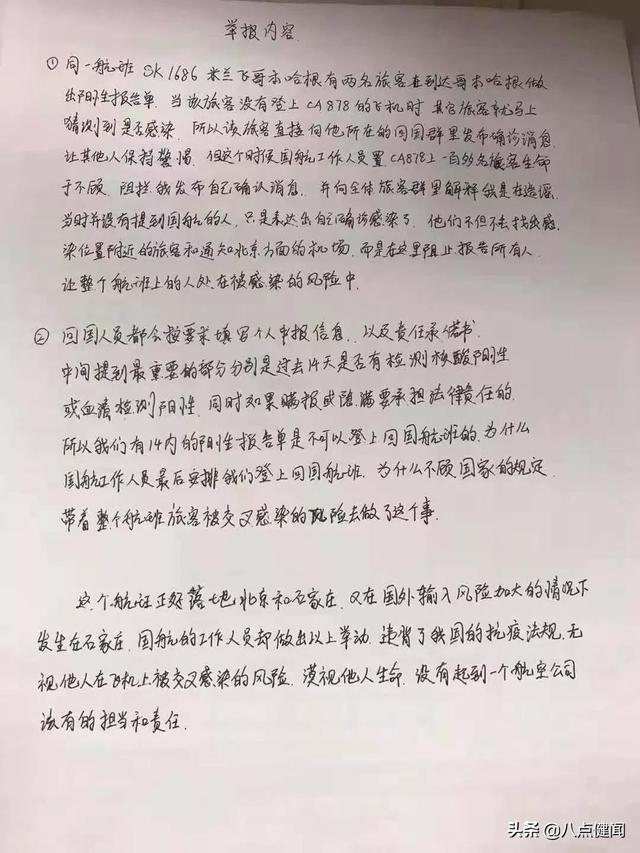 举报内容
① 同一航班 SK1686 米兰飞哥本哈根有两名旅客在到达哥本哈根做
出阳性报告单. 当该旅客没有登上CA878的飞机时 其它旅客就马上
猜测到是否感染. 所以该旅客直接向他所在的回国群里发布确诊消息.
让其他人保持警惕. 但这个时候国航工作人员置CA878上一百多名旅客生命
于不顾. 阻拦我发布自己确认消息. 并向全体旅客群里解释我是在造谣.
当时并没有提到国航的人, 只是表达出自己确诊感染了. 他们不但不去找感
染位置附近的旅客和通知北京方面的机场. 而是在这里阻止报告所有人.
让整个航班上的人处在被感染的风险中.
② 回国人员都会按要求填写个人申报信息. 以及责任承偌书.
中间提到最重要的部分分别是过去14天是否有检测核酸阳性
或血清检测阳性. 同时如果瞒报或隐满要承担法律责任的.
所以我们有14内的阳性报告单是不可以登上回国航班的. 为什么
国航工作人员最后安排我们登上回国航班. 为什么不顾国家的规定.
带着整个航班旅客被交叉感染的风险去做了这个事.
这个航班正好落地北京和石家庄. 又在国外输入风险加大的情况下
发生在石家庄. 国航的工作人员却做出以上举动. 违背了我国的抗疫法规. 无
视他人在飞机上被交叉感染的风险. 漠视他人生命. 没有起到一个航空公司
该有的担当和责任.
头条 @八点健闻